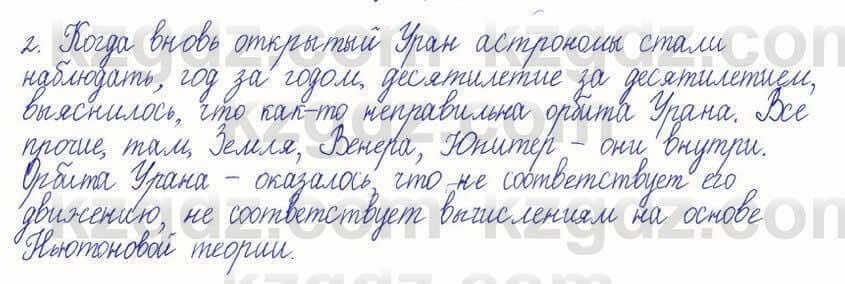 2. Когда вновь открытый Уран астрономы стали
наблюдать, год за годом, десятилетие за десятилетием,
выяснилось, что как-то неправильна орбита Урана. Все
прочие, там, Земля, Венера, Юпитер – они внутри.
Орбита Урана – оказалось, что не соответствует его
движению, не соответствует вычислениям на основе
Ньютоновой теории.